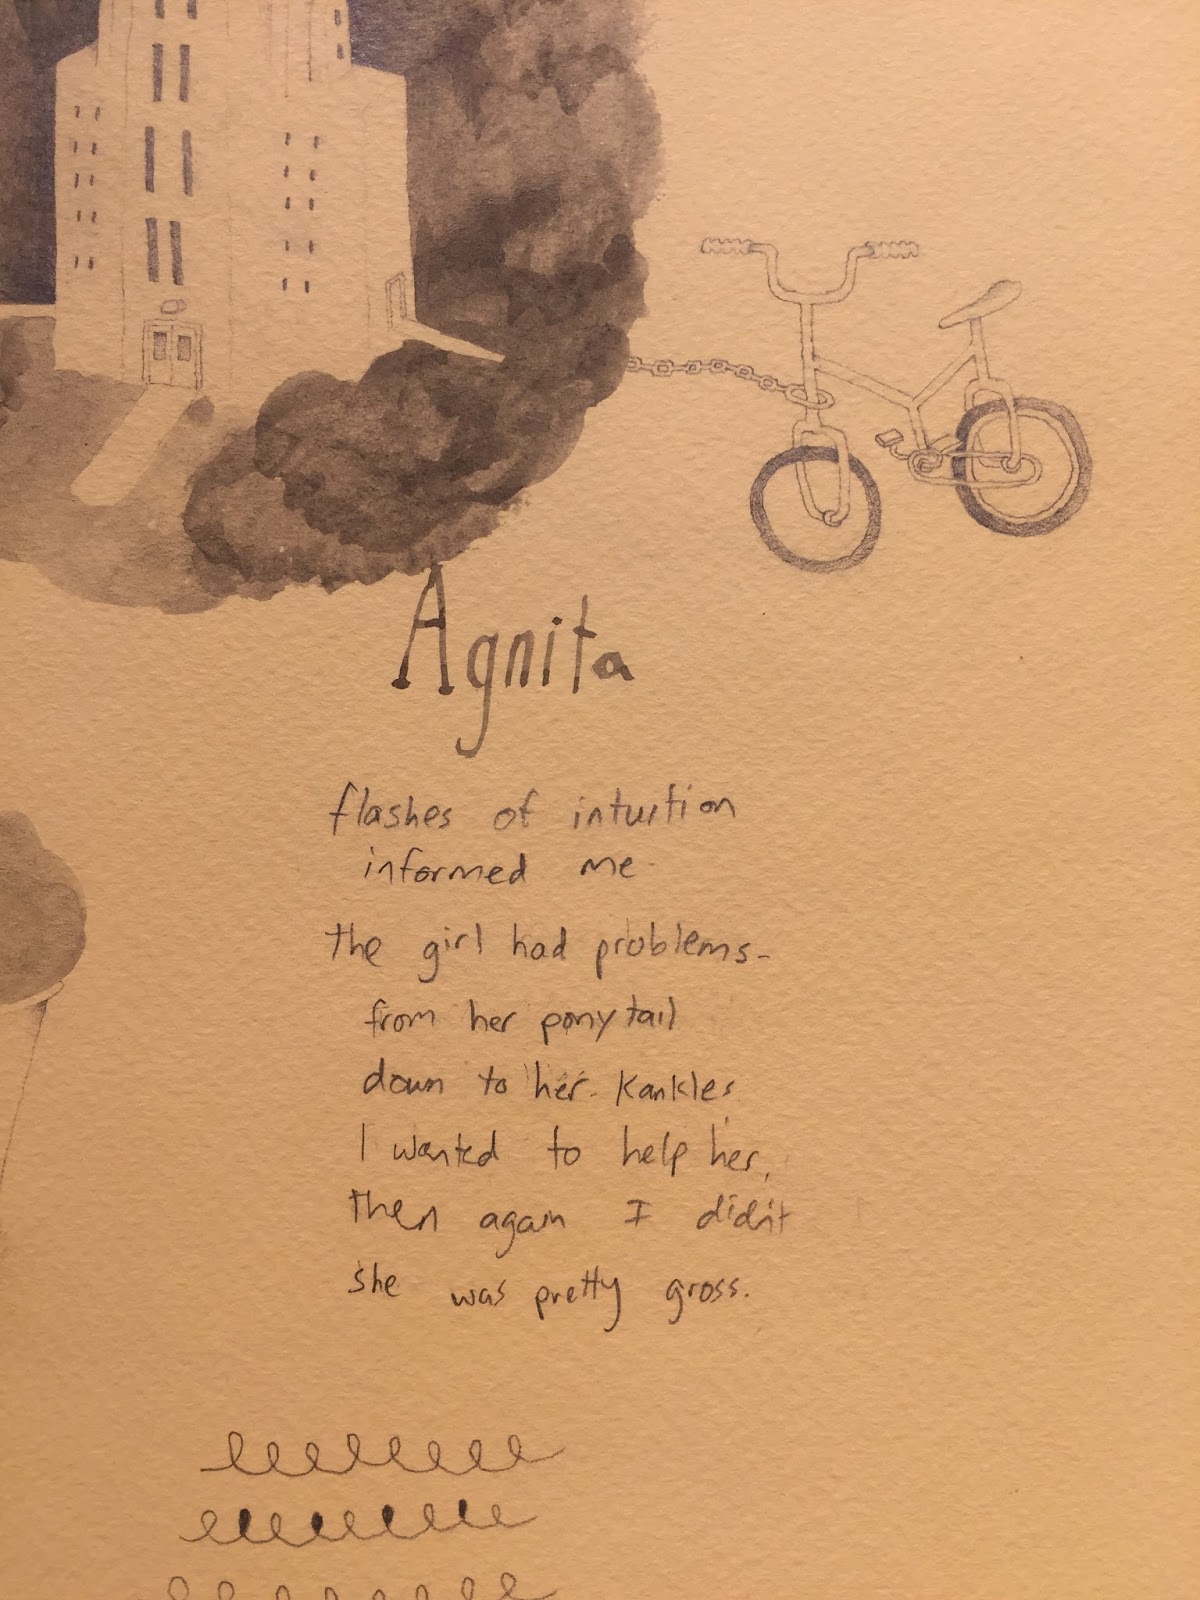 Agnita
flashes of intuition
informed me
the girl had problems-
from her ponytail
down to her Kankles.
I wanted to help her,
then again I didn't
she was pretty gross.